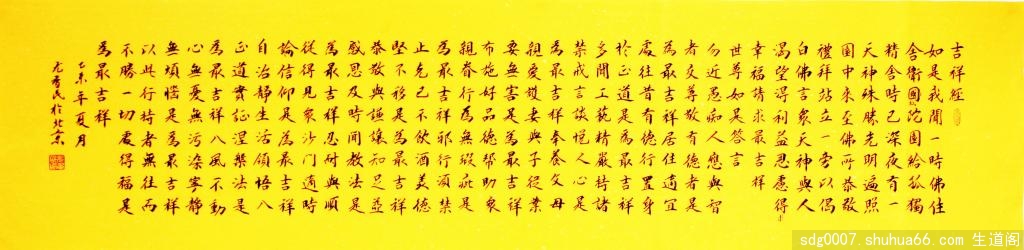 吉祥經
如是我聞一時佛住
舍衛國院園給孤獨
精舍時已深夜有一
天神殊勝光明遍照
園中來至佛所恭敬
禮拜站立一旁以偈
白佛言眾天神與人
渴望得利益思慮得
幸福請求最吉祥
世尊如是答言
勿近愚痴人應與智
者交尊敬有德者是
為最吉祥居住適宜
處往昔有德行置身
於正道是為最吉祥
多聞工藝精嚴持諸
禁戒言談悅人心是
為最吉祥奉養父母
親愛護妻與子從業
要無害是為最吉祥
布施好品德幫助眾
親眷行為無瑕疵是
為最吉祥邪行須禁
止克己不飲酒美德
堅不移是為最吉祥
恭敬與謙讓知足並
感恩及時聞教法是
為最吉祥忍耐與順
從得見眾沙門適時
論信仰是為最吉祥
自治靜生活領悟八
正道實證涅槃法是
為最吉祥八風不動
心無憂無污染寧靜
無煩惱是為最吉祥
以此行持者無往而
不勝一切處得福是
為最吉祥
乙未年夏月
民於北京
sdg0007.shuhua66.com 生道阁